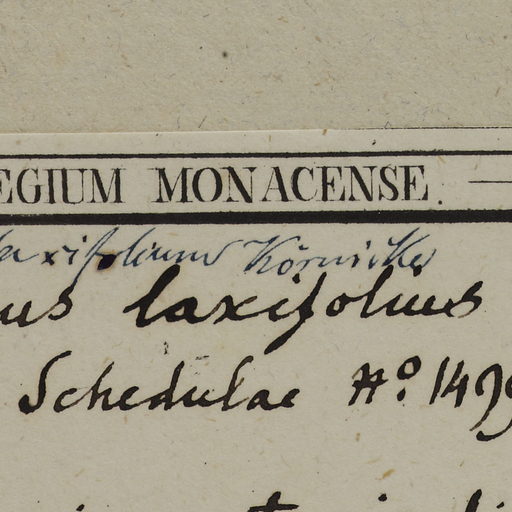 EGIUM MONACENSE.
laxifolium Körnicke
us laxifolius
Schedulae No. 149